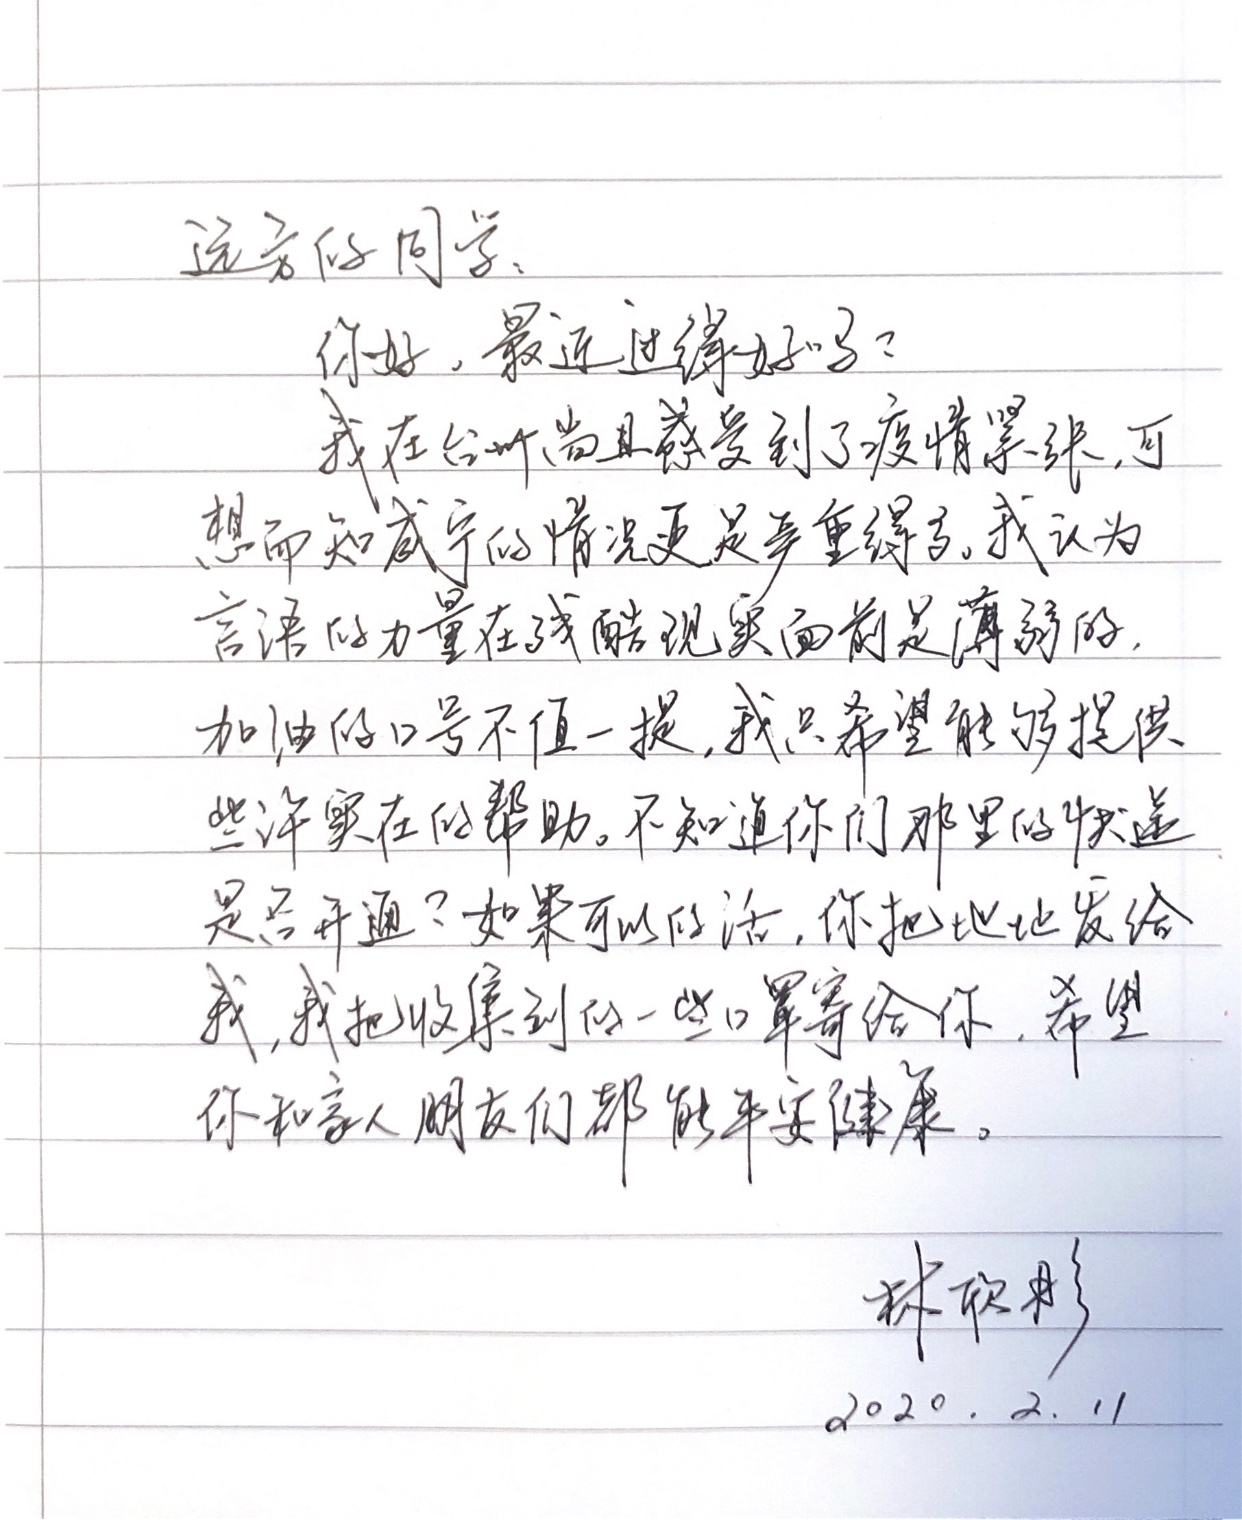 远方的同学：
你好，最近过得好吗？
我在台州尚且感受到了疫情紧张，可
想而知咸宁的情况更是严重得多。我认为
言语的力量在残酷现实面前是薄弱的，
加油的口号不值一提，我只希望能够提供
些许实在的帮助。不知道你们那里的快递
是否开通？如果可以的话，你把地址发给
我，我把收集到的一些口罩寄给你，希望
你和家人朋友们都能平安健康。
林欣彤
2020.2.11